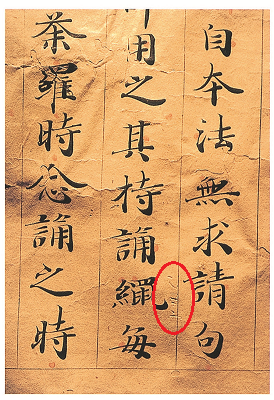 自本法無求請句
用之其持誦繩每
荼羅時念誦之時